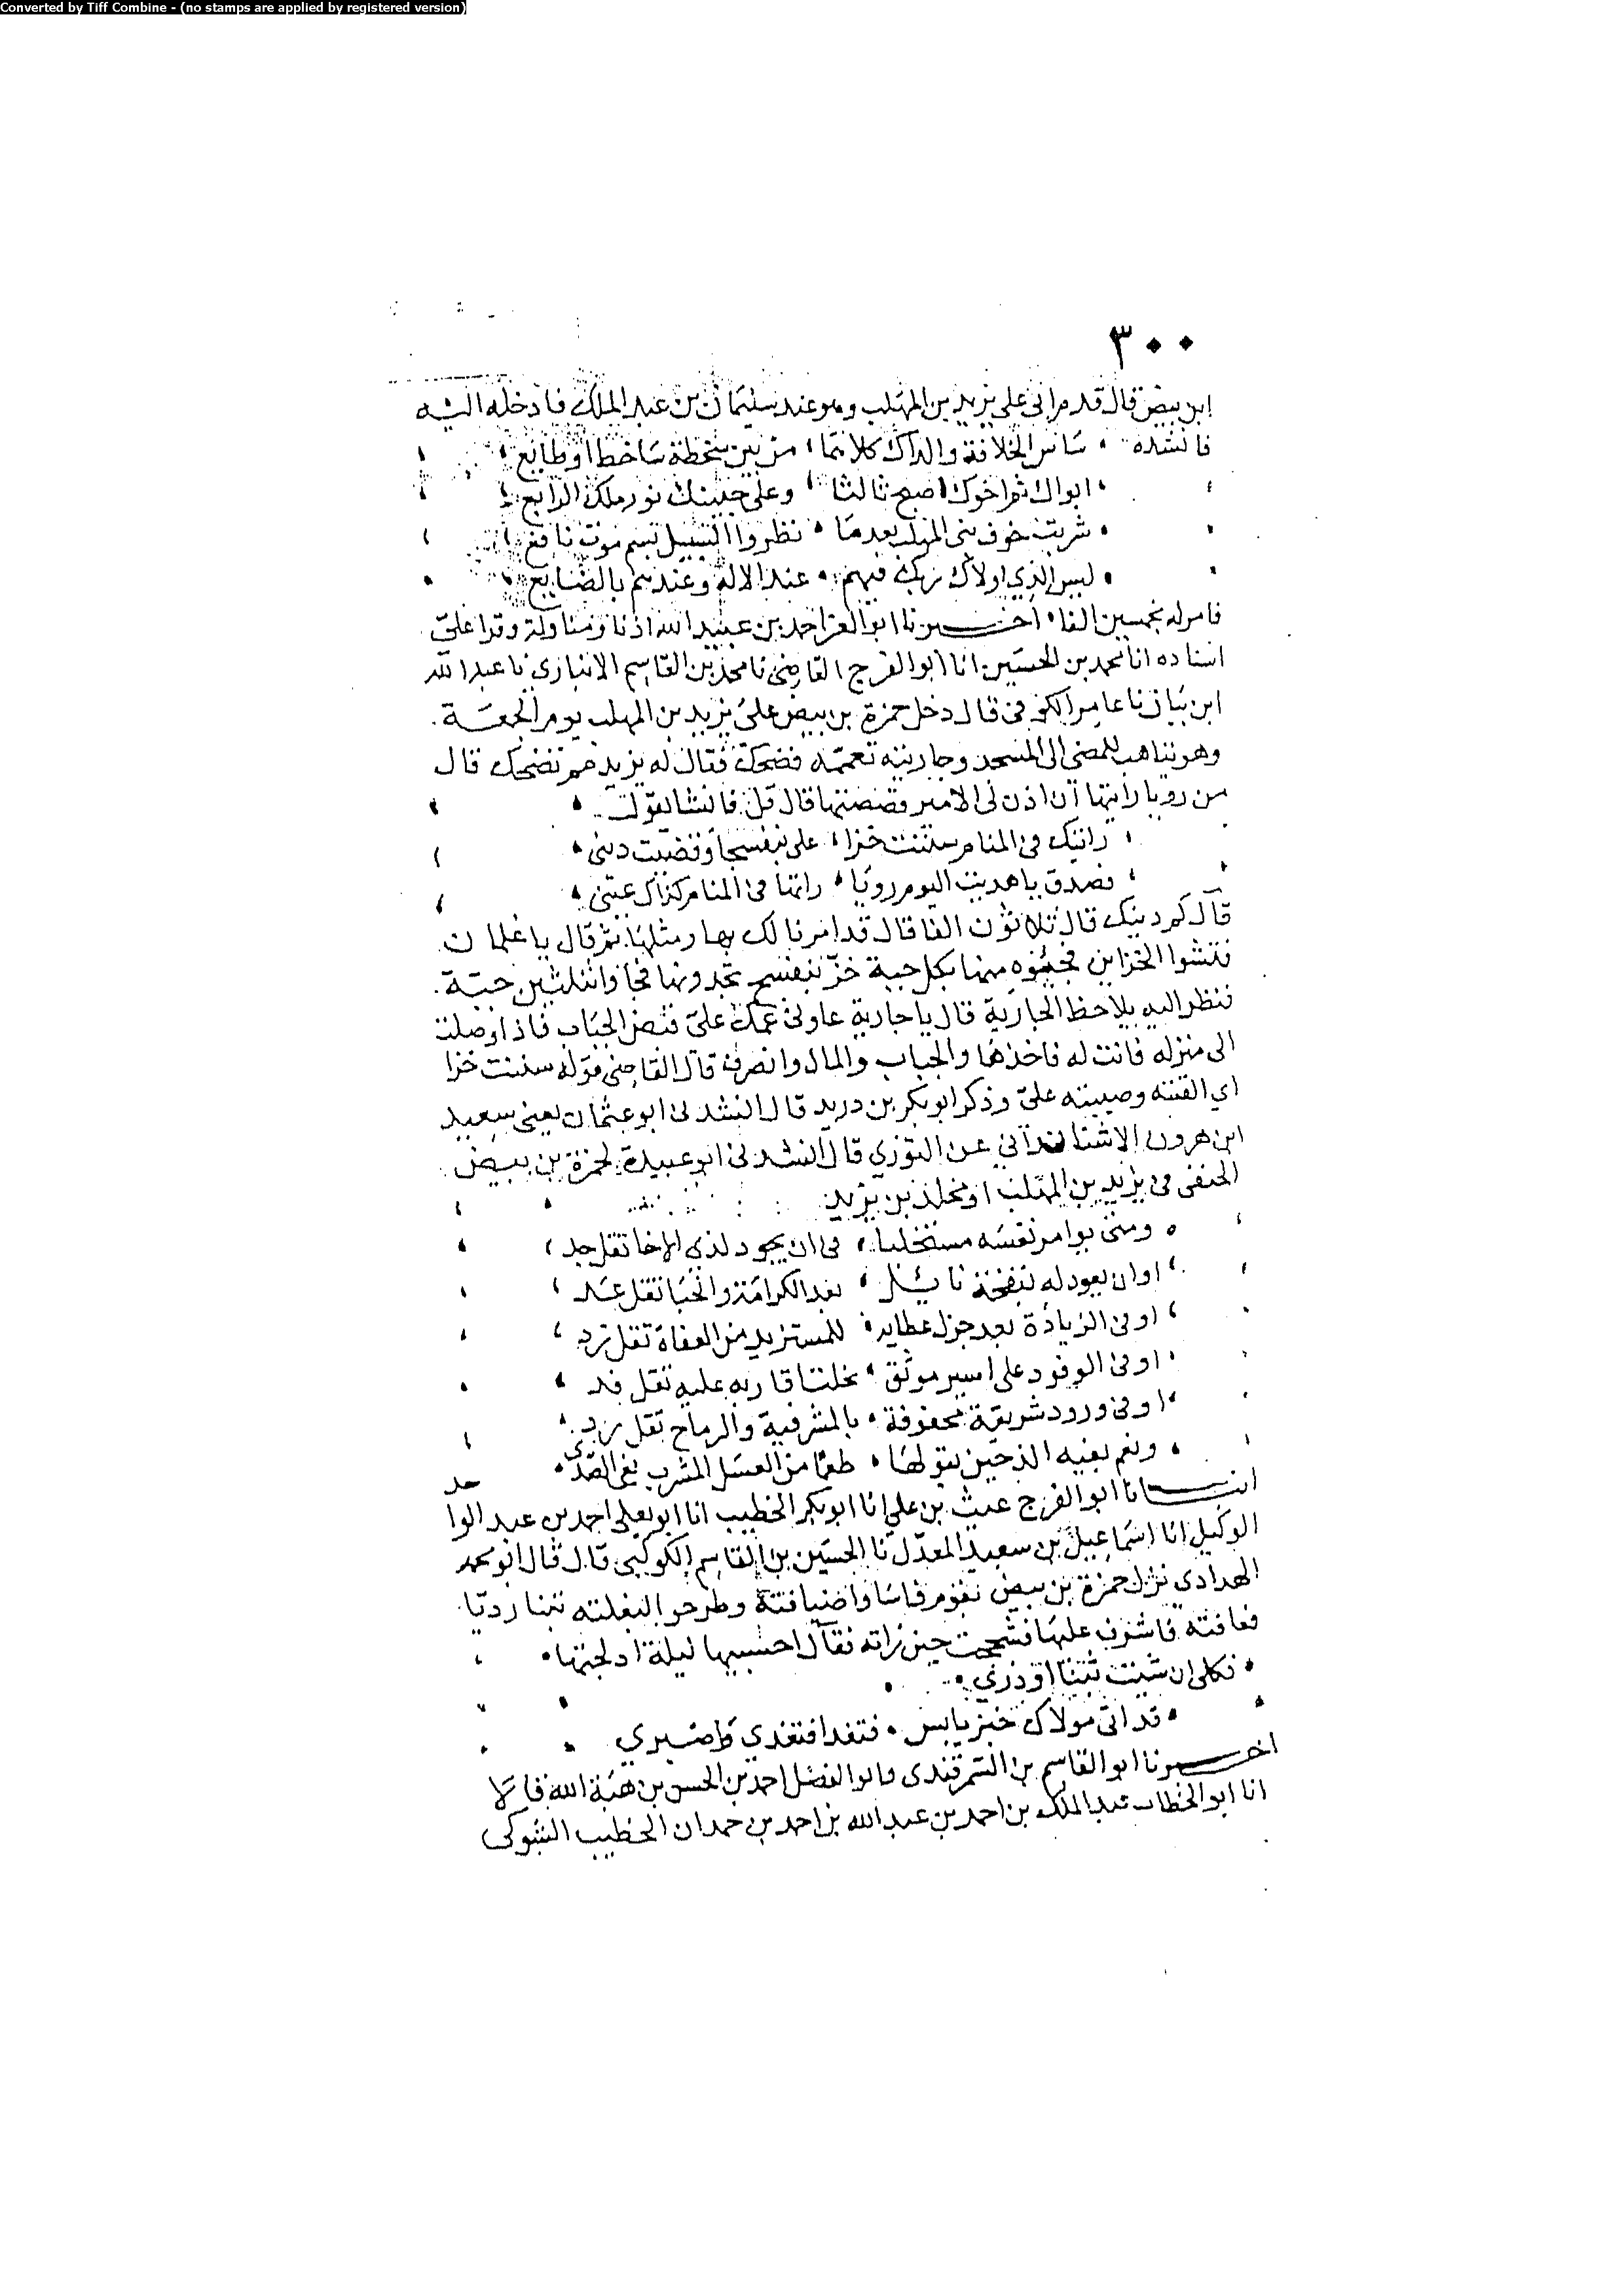 Converted by Tiff Combine - (no stamps are applied by registered version)
٣٠٠
ابن بيض قال قدم ابي على يزيد بن المهلب وهو عند سليمان بن عبد الملك فادخله اليه
فانشده ساس الخلافة والداك كلاهما من بين سخطة ساخط او طايع
ابواك ثم اخوك اصبح ثالثا وعلى جبينك نور ملك الرابع
شربت خوف بني المهلب بعدما نظروا السبيل بسم موت ناقع
ليس الذي اولاك ربك فيهم عند الاله وعندهم بالضايع
فامر له بخمسين الفا اخبرنا ابو العز احمد بن عبيد الله اذنا ومناولة وقرا علي
اسناده انا محمد بن الحسين انا ابو الفرج القاضي نا محمد بن القاسم الانباري نا عبد الله
ابن بيان نا عامر الكوفي قال دخل حمزة بن بيض على يزيد بن المهلب يوم الجمعة
وهو يتاهب للمضي الى المسجد وجاريته تعممه فضحك فقال له يزيد مم تضحك قال
من رويا رايتها ان اذن لي الامير قصصتها قال قل فانشا يقول
رايتك في المنام سننت خزا على بنفسجا وقضيت ديني
فصدق يا هديت اليوم رويا راتها في المنام كذاك عيني
قال كم دينك قال ثلاثون الفا قال قد امرنا لك بها ومثلها ثم قال يا غلمان
فتشوا الخزاين فجيئوه منها بكل جبة خز بنفسج تجدونها فجاوا بثلثين جبة
فنظر اليه يلاحظ الجارية قال يا جارية عاوني عمك على قبض الجباب فاذا وصلت
الى منزله فانت له فاخذها والجباب والمال وانصرف قال القاضي قوله سننت خزا
اي القيته وصببته علي وذكر ابو بكر بن دريد قال انشدني ابو عثمان يعني سعيد
ابن هرون الاشنانداني عن التوزي قال انشدني ابو عبيدة لحمزة بن بيض
الحنفي في يزيد بن المهلب او مخلد بن يزيد
ومتى يوامر نفسه مستخليا في ان يجود لذي الاخا تقل جد
او ان يعود له بنفحة نايل بعد الكرامة والحبا تقل عد
او في الزيادة بعد جزل عطايه للمستزيد من العفاة تقل زد
او في الوفود على اسير موثق بخلت اقاربه عليه تقل فد
او في ورود شريعة محفوفة بالمشرفية والرماح تقل رد
ونعم بفيه الذ حين يقولها طعما من العسل المشرب بفي الصدى
انبانا ابو الفرج غيث بن علي انا ابو بكر الخطيب انا ابو يعلى احمد بن عبد الوا حد
الوكيل انا اسماعيل بن سعيد المعدل نا الحسين بن القاسم الكوكبي قال قال ابو محمد
الهدادي نزل حمزة بن بيض بقوم فاساوا ضيافته وطرحوا لبغلته تبنا رديا
فعافته فاشرف عليها فشحجت حين راته فقال احسبيها ليلة ادلجتها
فكلي ان شيت تبنا او ذري
قد اتى مولاك خبز يابس فتغدا فتغدي واصبري
اخبرنا ابو القاسم بن السمرقندي وابو الفضل احمد بن الحسن بن هبة الله قالا
انا ابو الخطاب عبد الملك بن احمد بن عبد الله بن احمد بن حمدان الخطيب الشوكي